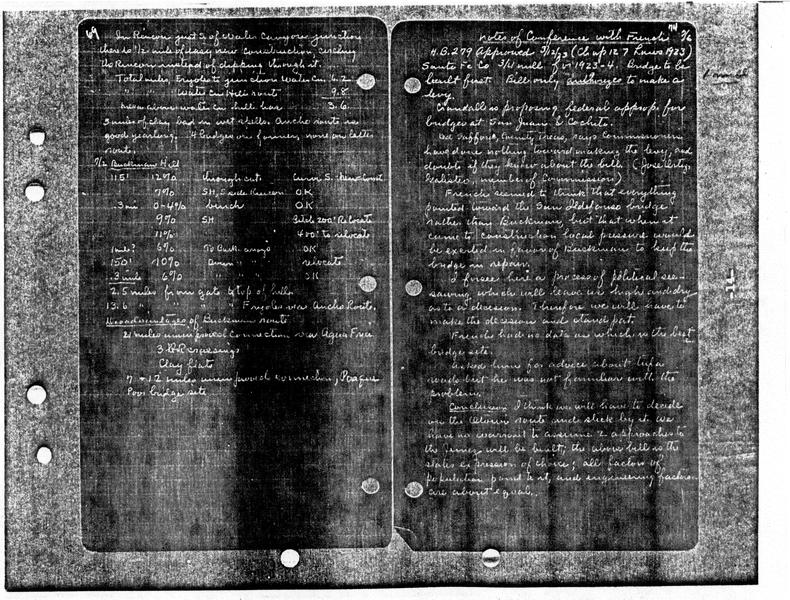 69
In Rincon just S, of Water Canyon junction
there is 1/2 mile of easy new construction,
the Rincon instead of dipping through it.
Total miles, Frijoles to junction Water Can 6.2
" Water Can Hill route 9.8
Water Can hill has 3.6
3 miles of clay, bad in wet, Ancho route is
good yearlong. 4 bridges on former, none on latter
route.
7/2 Buckman Hill
115' 12% through cut
7% S.H, OK
.3 mi 0-4% bench OK
9% SH 200' Relocate
11% 400' to relocate
1 mile? 6% To Buck. arroyo OK
150' 10% relocate
.3 mile 6% OK
2.5 miles from gate to top of hill
13.6 " " Frijoles via Ancho Route.
Disadvantages of Buckman route
21 miles unimproved connection via Agua Fria
3 RR crossings
Clay flats
7 + 12 miles unimproved connection, Poaque
Poor bridge site
Notes of Conference with French 7/6
H.B. 279 Approved 3/12/23 (Chap 127 Laws 1923)
Santa Fe Co 3/4 mill for 1923-4. Bridge to be
built first. Bill only authorizes to make a
levy.
Crandall is proposing Federal approp. for
bridges at San Juan & Cochiti.
County Treas, says Commissioners
have done nothing toward making the levy, and
doubts if they know about the bill. (Jose Ortiz,
Galisteo, member of Commission)
French seemed to think that everything
pointed toward the San Ildefonso bridge
rather than Buckman, but that when it
came to construction local pressure would
be exerted in favor of Buckman to keep the
bridge in repair.
I forsee here a process of political see-
sawing which will leave us high and dry
as to a decision. Therefore we will have to
make the decision and stand pat.
French had no data on which is the best
bridge site.
Asked him for advice about tufa
roads but he was not familiar with the
problem.
Conclusion I think we will have to decide
on the Otowi route and stick by it. We
have no warrant to assume 2 approaches to
the Jemez will be built; the above bill is the
states expression of choice; all factors of
population point to it, and engineering factors
are about equal.